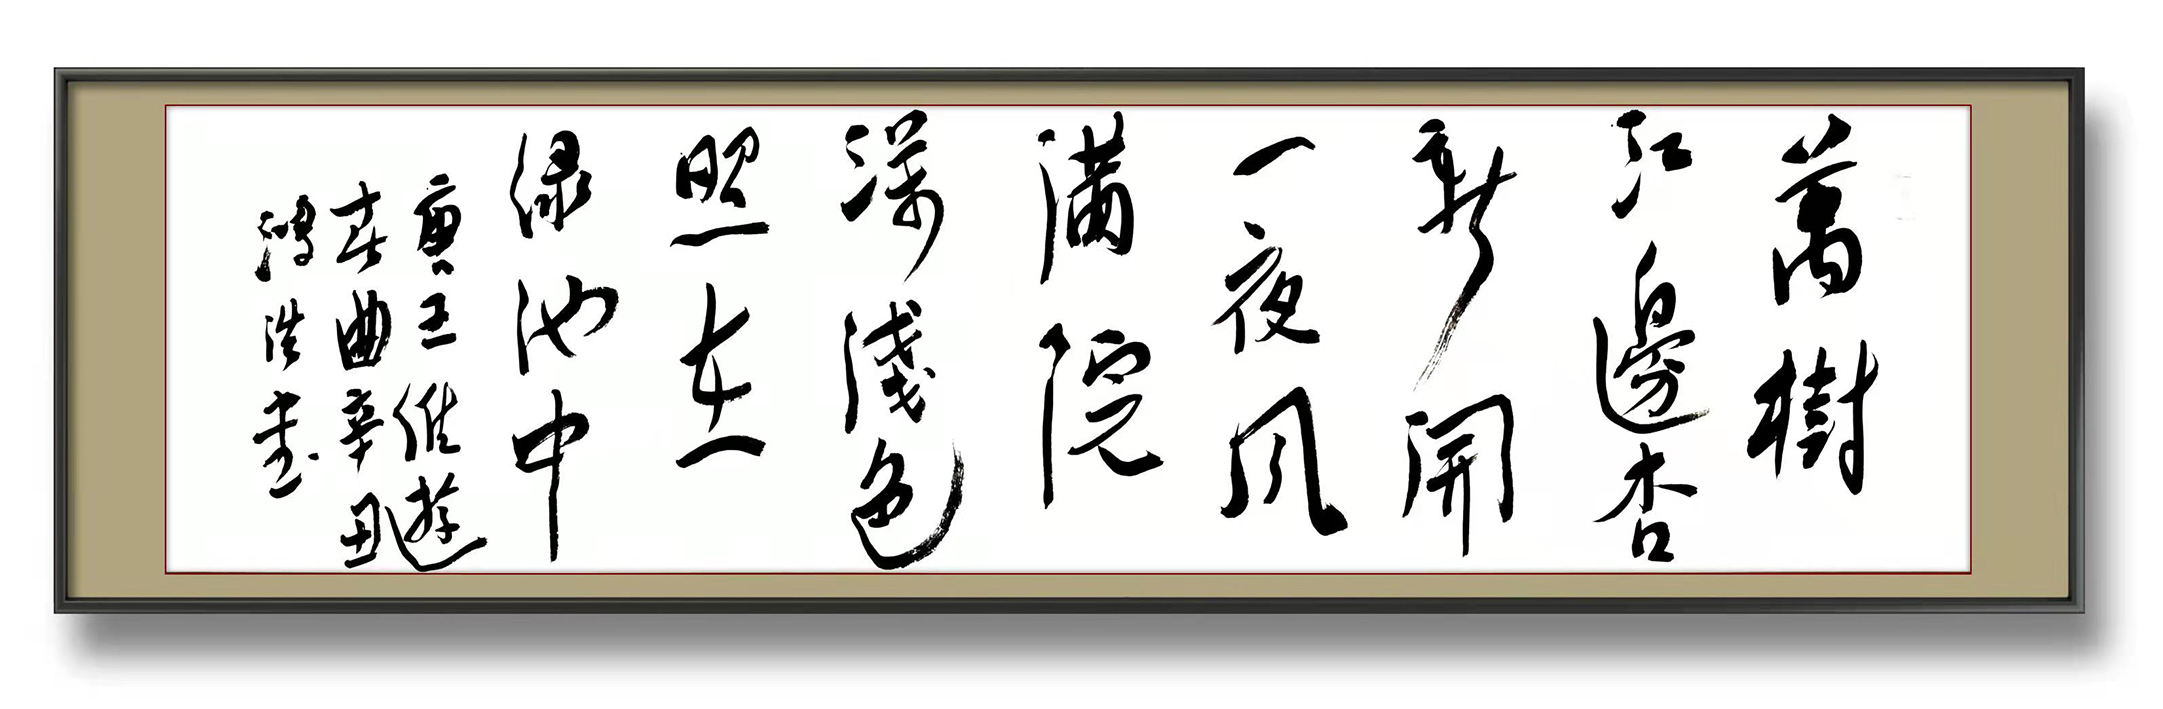 萬樹
江邊杏
新開
一夜风
满院
深淺色
照在
绿池中
唐王維遊
春曲辛丑
鴻浩書